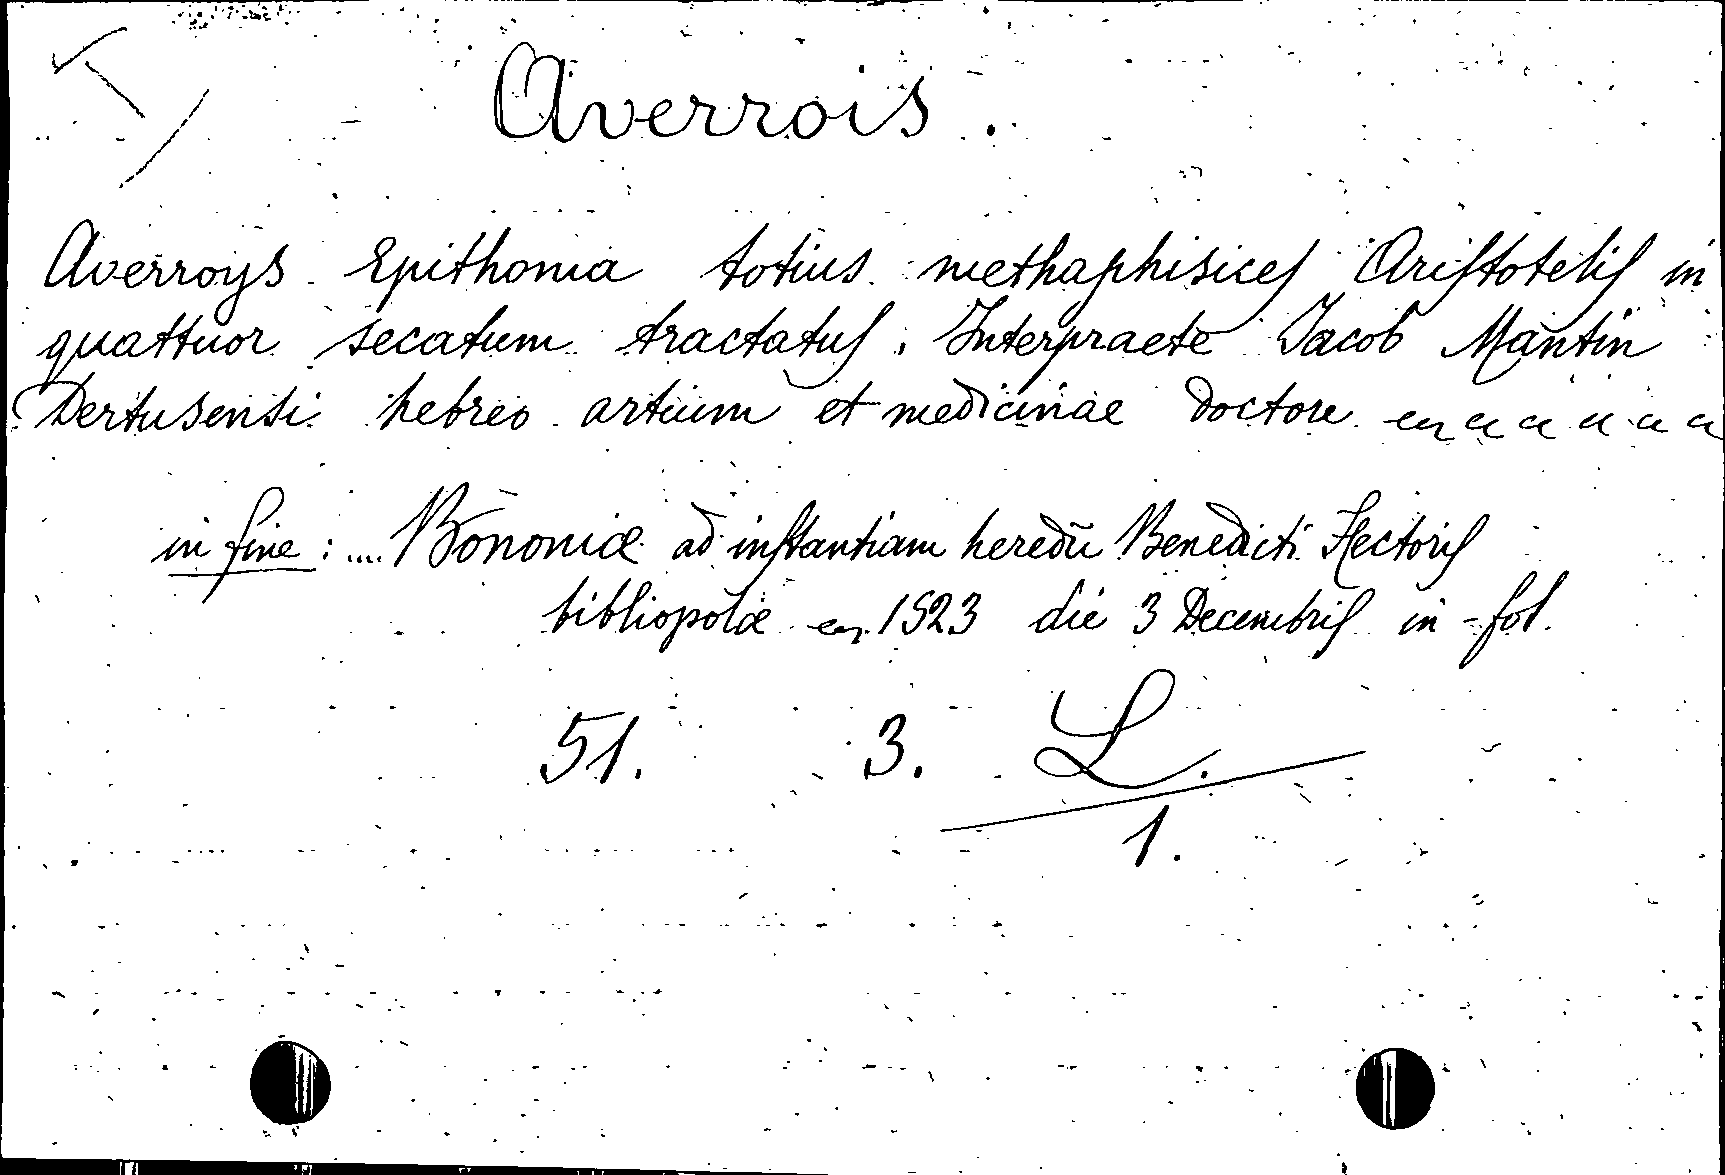 Averrois.
Averroys Epithoma totius methaphisices Aristotelis in
quattuor secatum tractatus. Interpraete Jacob Mantin
Dertusensi hebreo artium et medicinae doctore
in fine: .... Bononiæ ad instantiam heredū Benedicti Hectoris
bibliopolæ 1523 die 3 Decembris in-fol.
51. 3. L.
1.